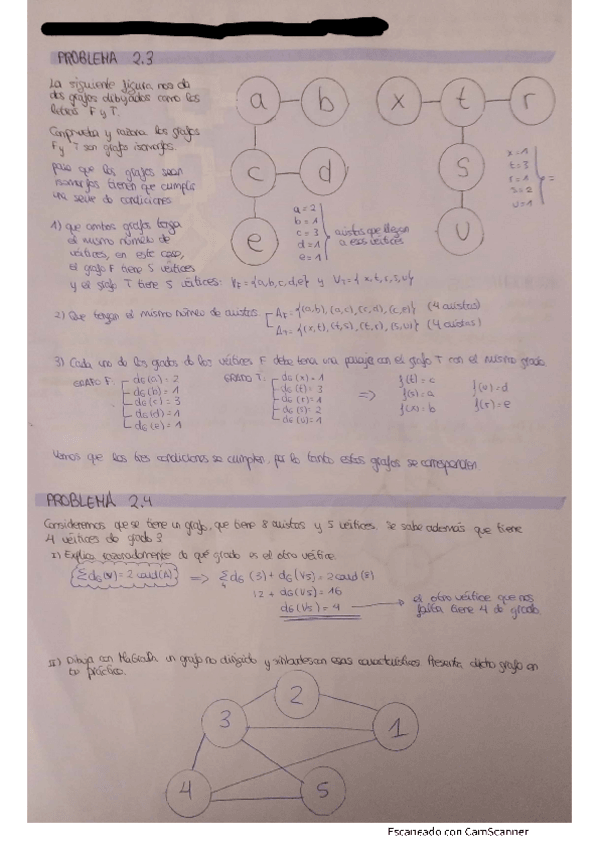 PROBLEMA 2.3
La siguiente figura nos da
dos grafos dibujados como las
letras F y T.
Comprueba y razona los grafos
F y T son grafos isomorfos.
para que los grafos sean
isomorfos tienen que cumplir
una serie de condiciones
1) que ambos grafos tenga
el mismo número de
vértices, en este caso,
el grafo F tiene 5 vértices
y el grafo T tiene 5 vértices: V_F = {a,b,c,d,e} y V_T = {x,t,r,s,u}
a
b
c
d
e
a = 2
b = 1
c = 3
d = 1
e = 1
aristas que llegan
a esos vértices
x
t
r
s
u
x = 1
t = 3
r = 1
s = 2
u = 1
=
2) Que tengan el mismo número de aristas
A_F = {(a,b), (a,c), (c,d), (c,e)} (4 aristas)
A_T = {(x,t), (t,s), (t,r), (s,u)} (4 aristas)
3) Cada uno de los grados de los vértices F debe tener una pareja con el grafo T con el mismo grado
GRAFO F:
dG(a) = 2
dG(b) = 1
dG(c) = 3
dG(d) = 1
dG(e) = 1
GRAFO T:
dG(x) = 1
dG(t) = 3
dG(r) = 1
dG(s) = 2
dG(u) = 1
=>
f(t) = c
f(s) = a
f(x) = b
f(u) = d
f(r) = e
Vemos que las tres condiciones se cumplen, por lo tanto estos grafos se corresponden
PROBLEMA 2.4
Consideremos que se tiene un grafo, que tiene 8 aristas y 5 vértices. Se sabe además que tiene
4 vértices de grado 3
I) Explica razonadamente de qué grado es el otro vértice.
Σ dG(V) = 2 card(A) => Σ dG (3) + dG(V5) = 2 card(8)
4
12 + dG(V5) = 16
dG(V5) = 4
el otro vértice que nos
falta tiene 4 de grado
II) Dibuja con MaGraDa un grafo no dirigido y sin lazos con esas características. Presenta dicho grafo en
tu práctica.
2
3
1
4
5
Escaneado con CamScanner